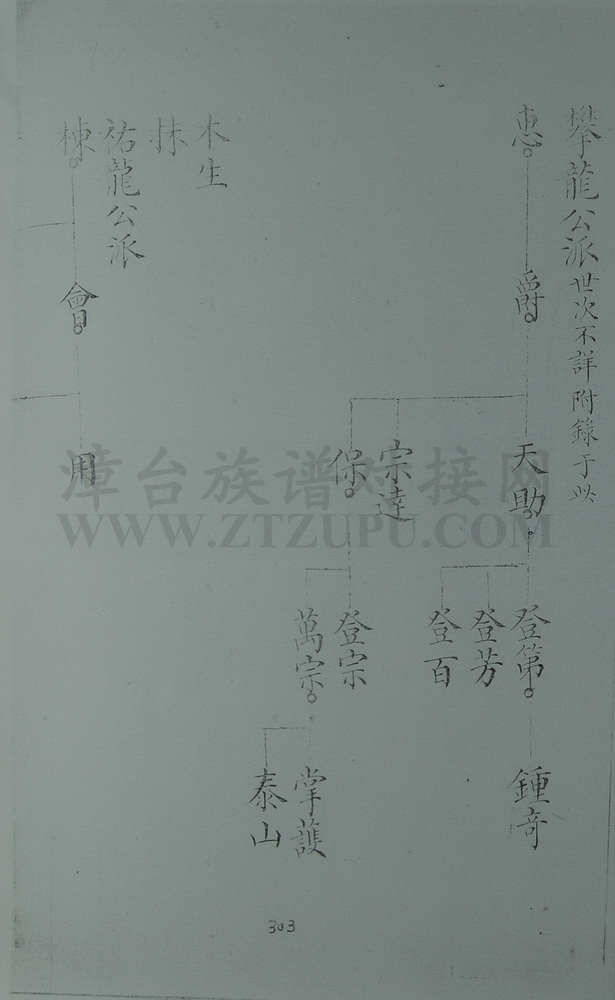 攀龍公派世次不詳附錄于此
惠
爵
天助
宗達
保
登第
登芳
登百
登宗
萬宗
鍾奇
掌護
泰山
木生
抹
祐龍公派
棟
會
用
漳台族谱对接网
WWW.ZTZUPU.COM
303